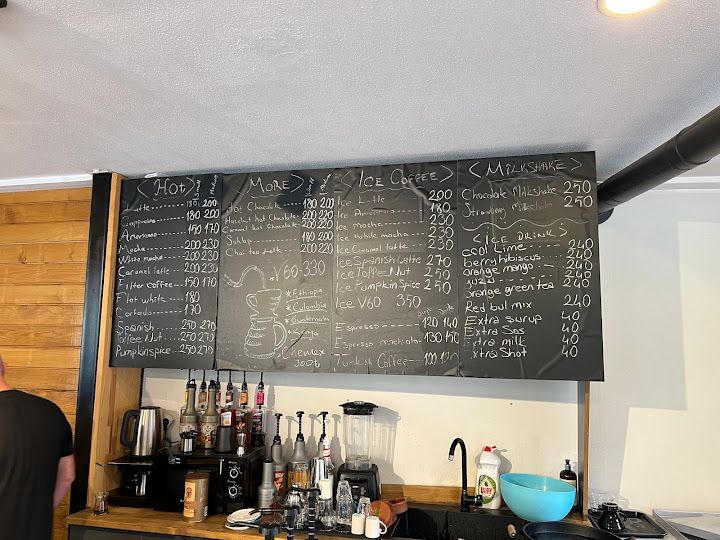 < Hot >
Small
Medium
Latte 185 200
Cappucino 180 200
Americano 150 170
Mocha 200 230
White mocha 200 230
Caramel latte 200 230
Filter coffee 150 170
Flat white 180
Cortado 170
Spanish 250 270
Toffee Nut 250 270
Pumpkin spice 250 270
< MORE >
Hot Chocolate 180 200
Hazelnut hot Chocolate 200 220
Caramel hot Chocolate 200 220
Sahlep 180 200
Chai tea latte 200 220
V60-330
*Ethiopia
*Colombia
*Guatemala
*Kenya
Chemex
< ICE COFFEE >
Ice Latte 200
Ice Americano 180
Ice mocha 230
Ice white mocha 230
Ice Caramel latte 230
Ice Spanish Latte 270
Ice Toffee Nut 250
Ice Pumpkin Spice 250
Ice V60 350
Espresso 120 140
Espresso machiato 130 150
Turkish Coffee 100 120
< MILKSHAKE >
Chocolate Milkshake 250
Strawberry Milkshake 250
< ICE DRINKS
cool Lime 240
berry hibiscus 240
orange mango 240
yuzu 240
orange green tea 240
Red bul mix 240
Extra surup 40
Extra Sos 40
Extra milk 40
Extra Shot 40